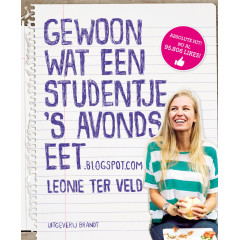 GEWOON
WAT EEN
STUDENTJE
'S AVONDS
EET.BLOGSPOT.COM
LEONIE TER VELD
UITGEVERIJ BRANDT
ABSOLUTE HIT!
NU AL
95.806 LIKES!